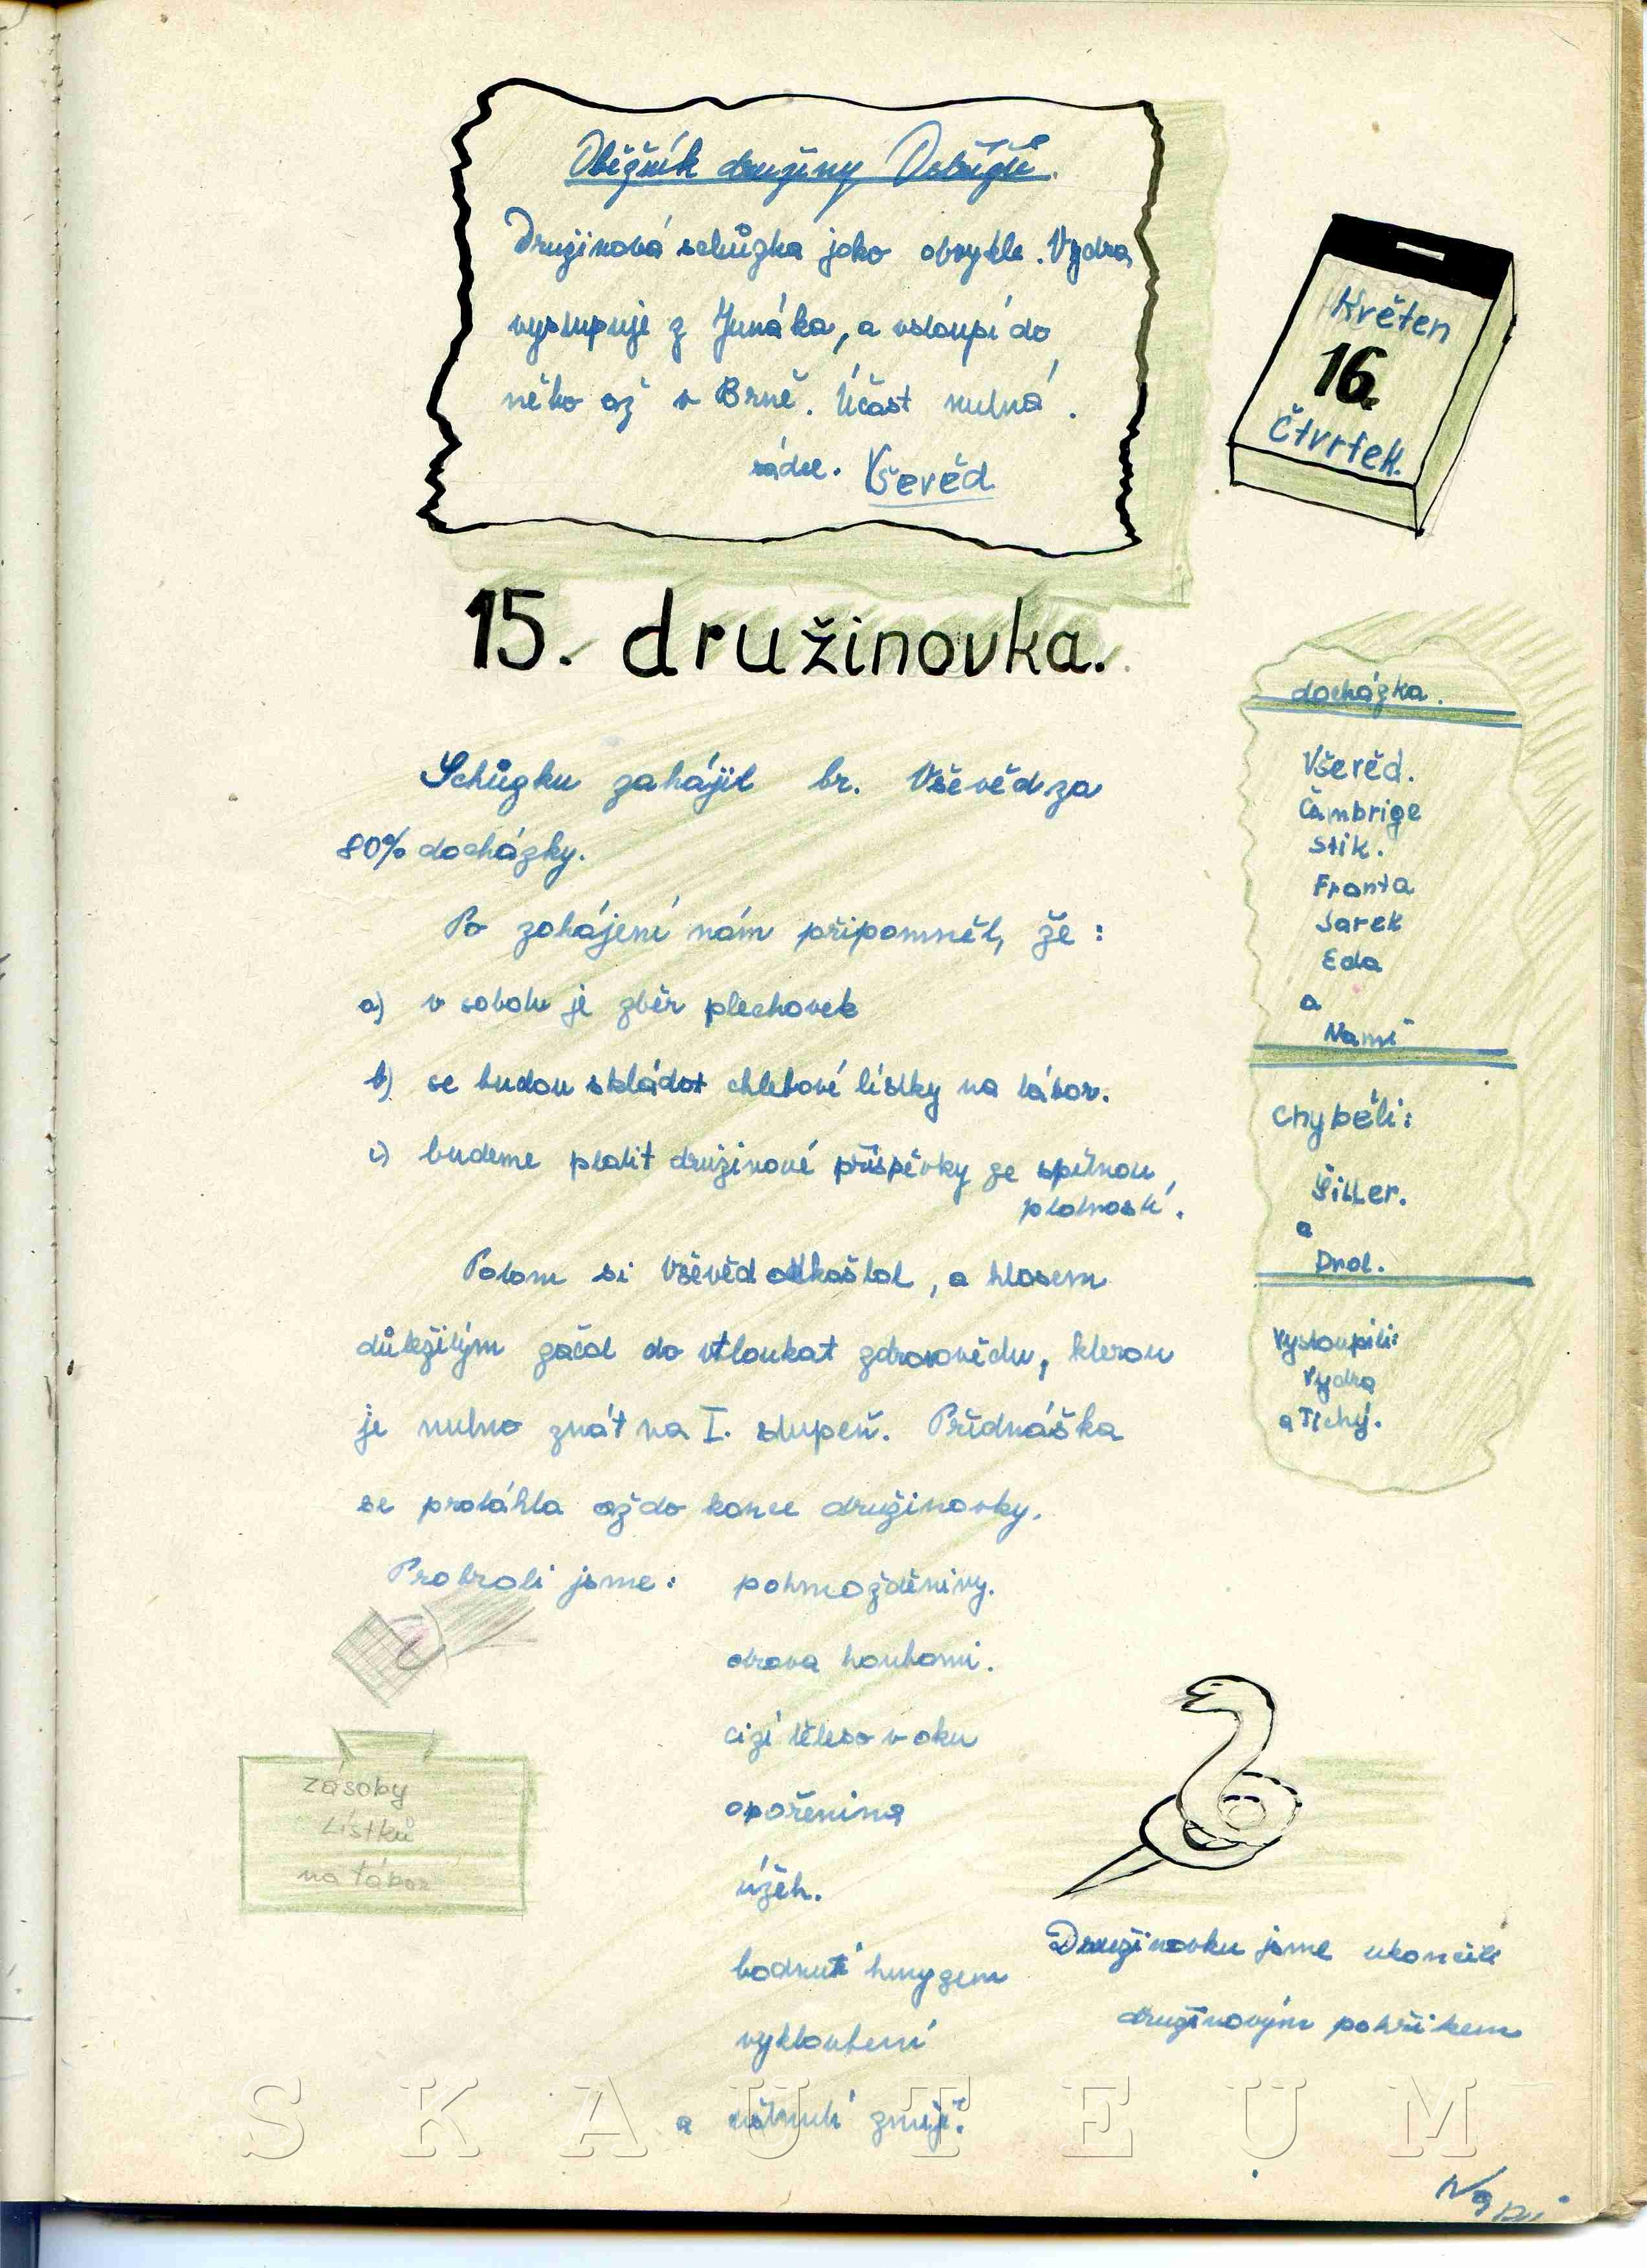 Oběžník družiny Ostřížů.
Družinová schůzka jako obvykle. Vydra
vystupuje z Junáka, a vstoupí do
něho až v Brně. Účast nutná.
rádce. Vševěd
Květen
16.
Čtvrtek.
15. družinovka.
Schůzku zahájil br. Vševěd za
80% docházky.
Po zahájení nám připomněl, že:
a) v sobotu je zběr plechovek
b) se budou skládat chlebové lístky na tábor.
c) budeme platit družinové příspěvky ze spětnou
platností.
Potom si Vševěd odkašlal, a hlasem
důležitým začal do vtloukat zdravovědu, kterou
je nutno znát na I. stupeň. Přednáška
se protáhla až do konce družinovky.
Probrali jsme: pohmožděniny.
otrava houbami.
cizí těleso v oku
opařenina
úžeh.
bodnutí hmyzem
vykloubení
a uštknutí zmijí.
docházka.
Vševěd.
Čambrige
Stik.
Franta
Jarek
Eda
a
Nami
Chyběli:
Šiller.
a
Drol.
Vystoupili:
Vydra
a Tichý.
zásoby
lístků
na tábor
Družinovku jsme ukončili
družinovým pokřikem
SKAUTEUM